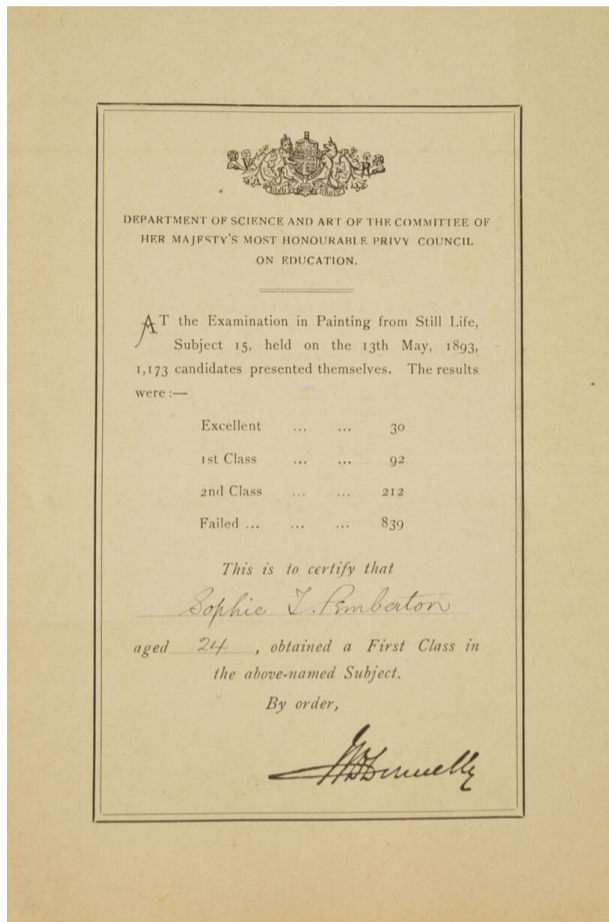 V R
DEPARTMENT OF SCIENCE AND ART OF THE COMMITTEE OF
HER MAJESTY'S MOST HONOURABLE PRIVY COUNCIL
ON EDUCATION.
AT the Examination in Painting from Still Life,
Subject 15, held on the 13th May, 1893,
1,173 candidates presented themselves. The results
were :—
Excellent ... ... 30
1st Class ... ... 92
2nd Class ... ... 212
Failed ... ... ... 839
This is to certify that
Sophie T. Pemberton
aged 24, obtained a First Class in
the above-named Subject.
By order,